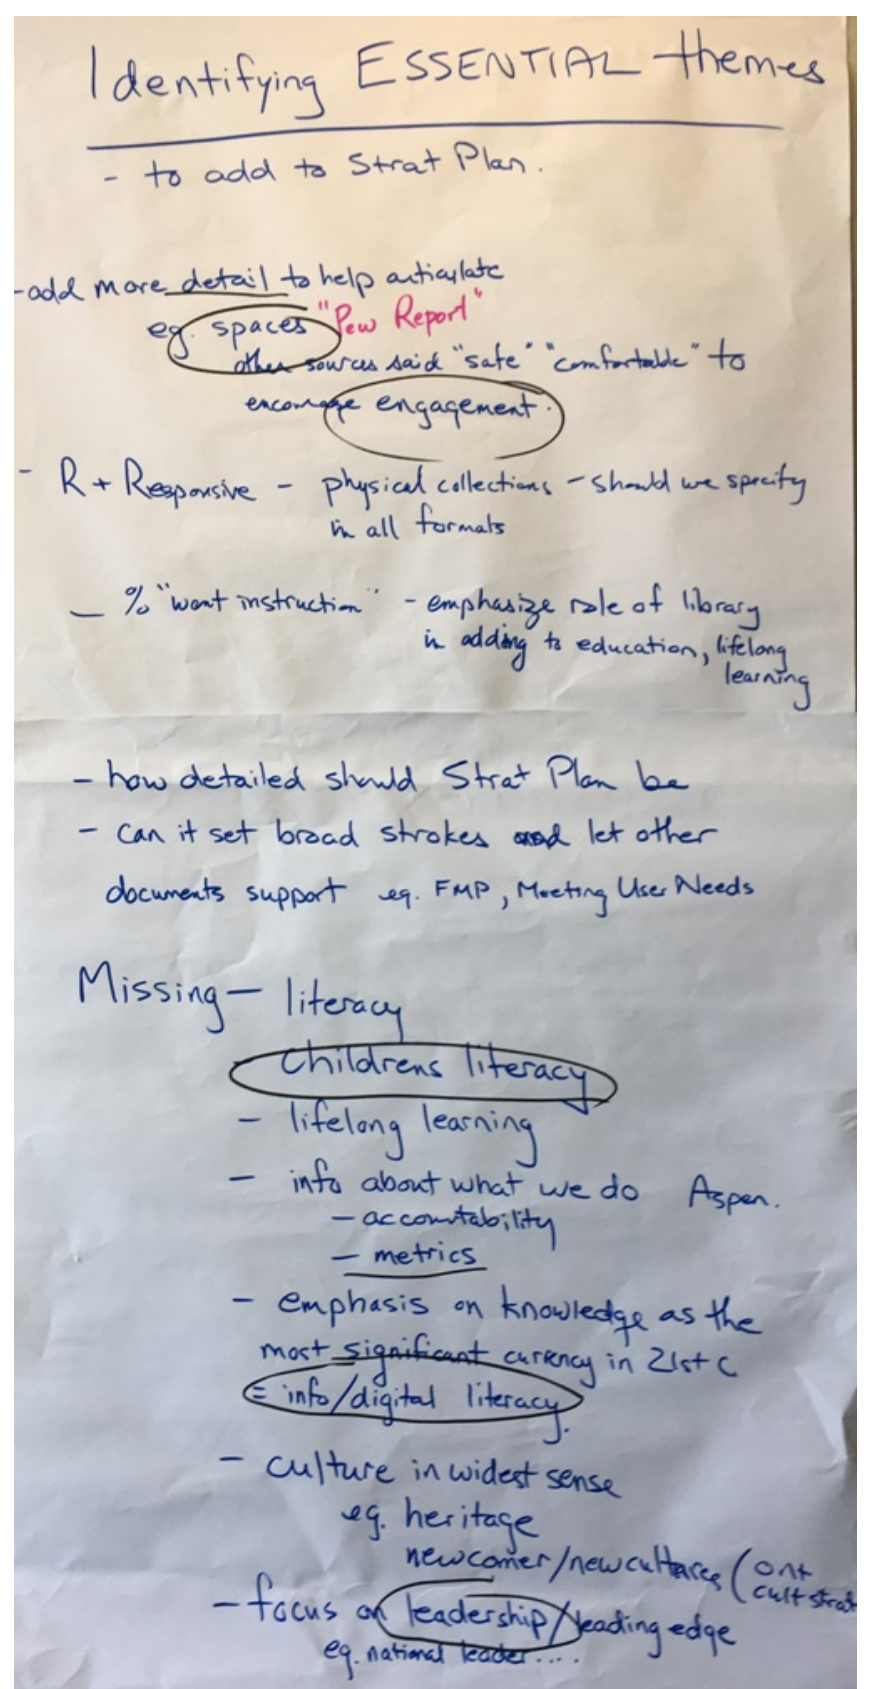 Identifying ESSENTIAL themes
- to add to Strat Plan.
- add more detail to help articulate
eg. spaces "Pew Report"
other sources said "safe" "comfortable" to
encourage engagement.
- R + Responsive - physical collections - should we specify
in all formats
- % "want instruction" - emphasize role of library
in adding to education, lifelong
learning
- how detailed should Strat Plan be
- can it set broad strokes and let other
documents support eg. FMP, Meeting User Needs
Missing - literacy
- childrens literacy
- lifelong learning
- info about what we do Aspen.
- accountability
- metrics
- emphasis on knowledge as the
most significant currency in 21st C
= info/digital literacy.
- culture in widest sense
eg. heritage
newcomer/new cultures (ont
cult strat
- focus on leadership/leading edge
eg. national leader....